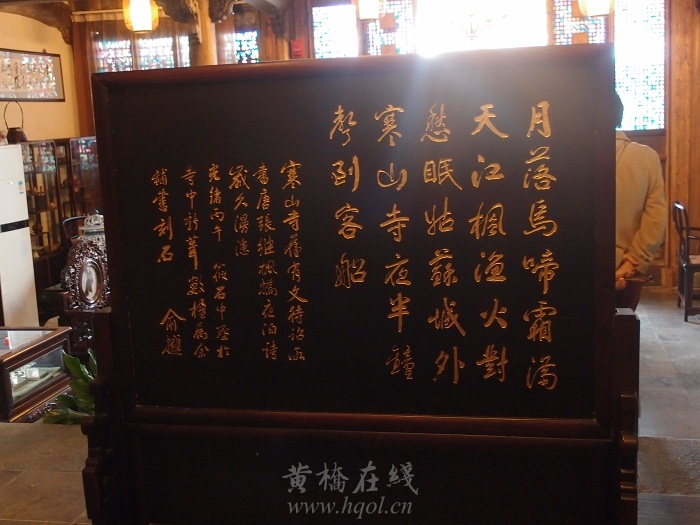 月落烏啼霜滿
天江楓漁火對
愁眠姑蘇城外
寒山寺夜半鐘
聲到客船
寒山寺舊有文待詔所
書唐張繼楓橋夜泊詩
歲久漫漶
光緒丙午筱石中丞於
寺中新葺數楹屬余
補書刻石
俞樾
黄橋在綫
www.hqol.cn